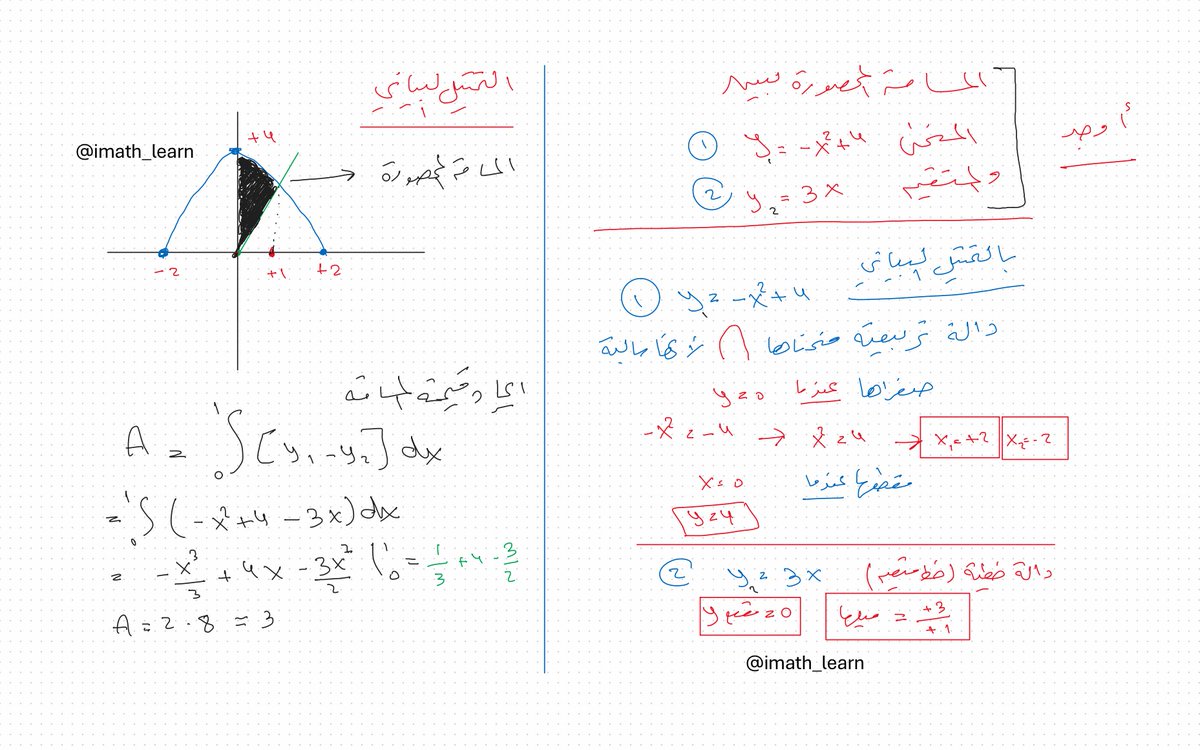 أوجد
المساحة المحصورة بين
المنحنى y₁ = -x² + 4 ①
والمستقيم y₂ = 3x ②
بالتمثيل البياني
① y₁ = -x² + 4
دالة تربيعية منحناها ∩ لأنها سالبة
صفراها عندما y = 0
-x² = -4 → x² = 4 → x₁ = +2 x₂ = -2
مقطعها عندما x = 0
y = 4
② y₂ = 3x دالة خطية (خط مستقيم)
مقطع y = 0 ميلها = +3/+1
@imath_learn
التمثيل البياني
@imath_learn
+4
المساحة المحصورة
-2 +1 +2
ايجاد قيمة المساحة
A = ∫₀¹ [y₁ - y₂] dx
= ∫₀¹ (-x² + 4 - 3x) dx
= -x³/3 + 4x - 3x²/2 |₀¹ = 1/3 + 4 - 3/2
A = 2.8 ≈ 3